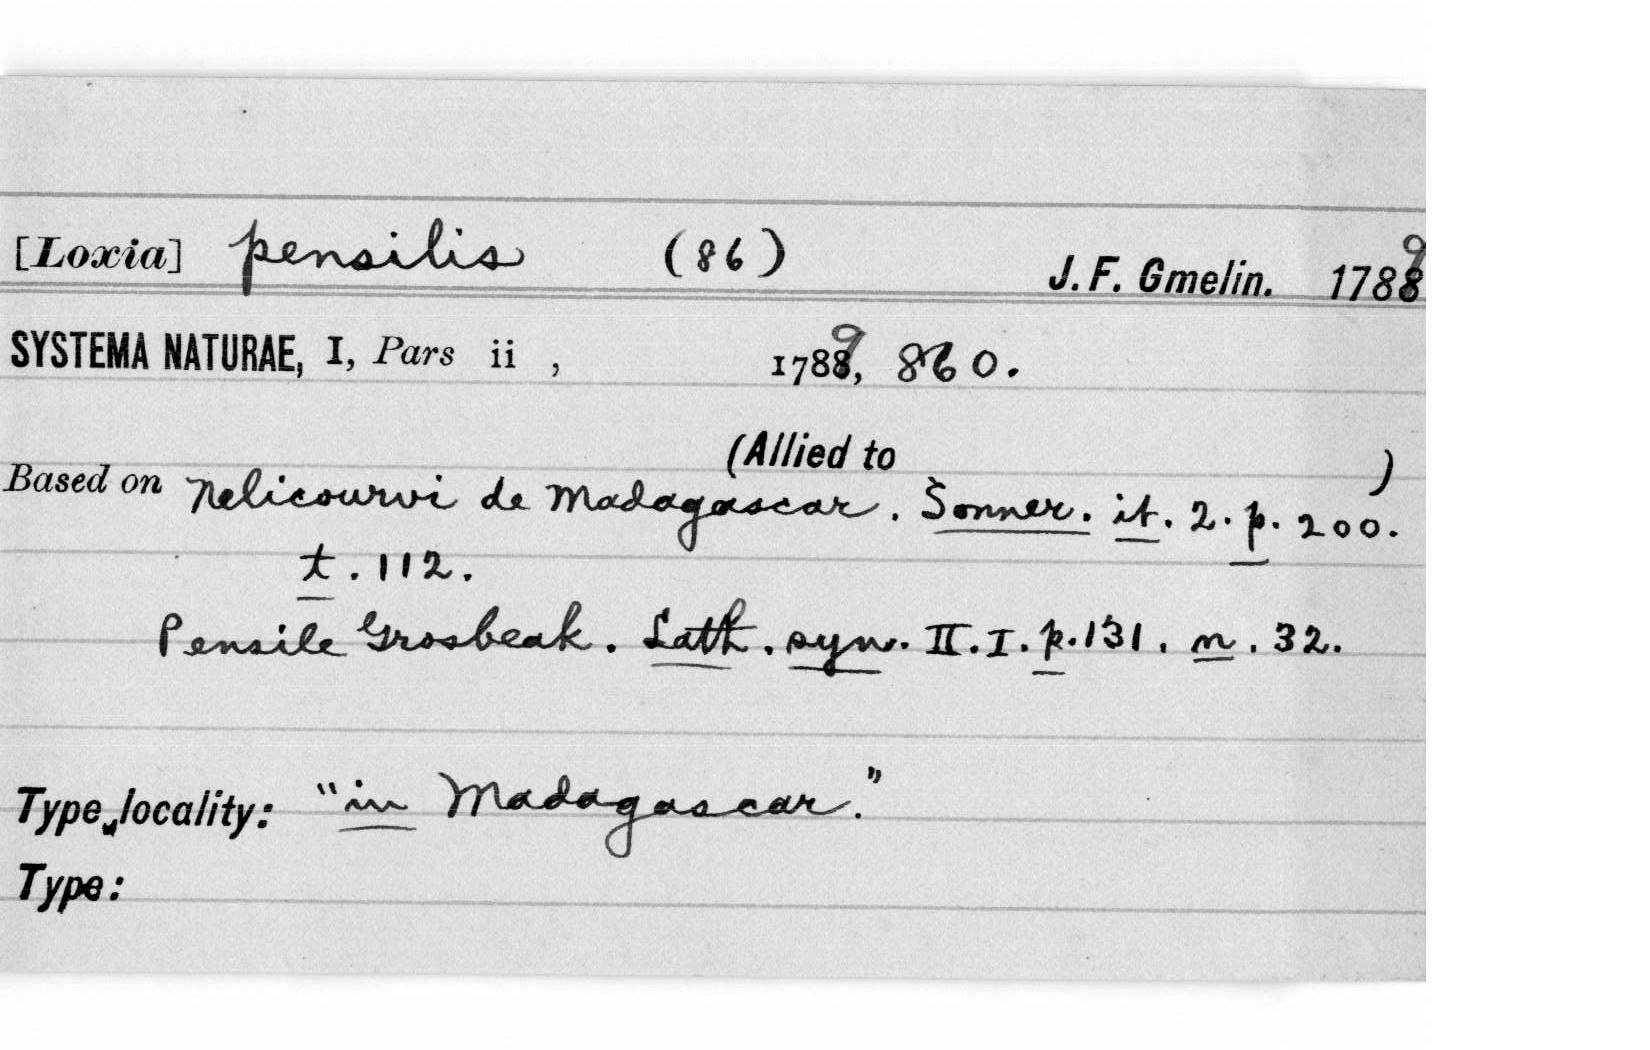 [Loxia] pensilis (86) J. F. Gmelin. 1789
SYSTEMA NATURAE, I, Pars ii , 1789, 860.
(Allied to )
Based on Nelicourvi de Madagascar. Sonner. it. 2. p. 200.
t. 112.
Pensile Grosbeak. Lath. syn. II. I. p. 131. n. 32.
Type locality: "in Madagascar."
Type: